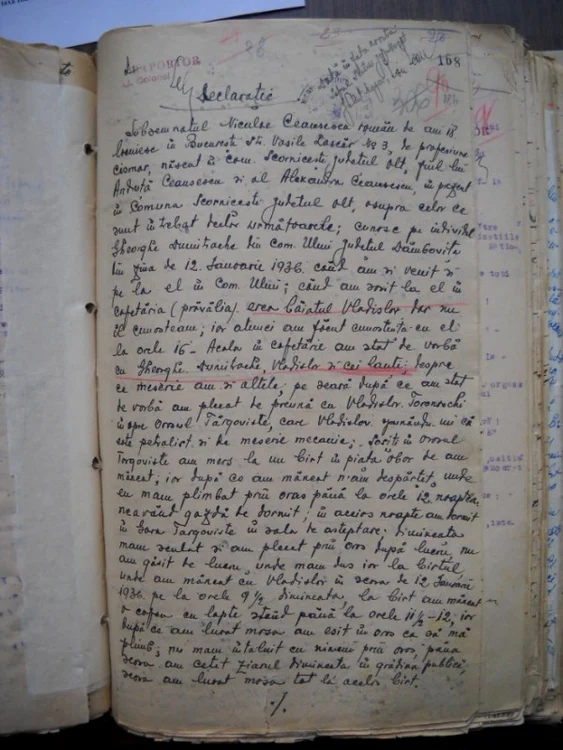 168
Declarație
Subsemnatul Niculae Ceausescu român de ani 18
locuiesc în București Str. Vasile Lascăr No 3, de profesiune
cismar, născut în com. Scornicesti județul Olt, fiul lui
Andruță Ceausescu si al Alexandra Ceausescu, în prezent
în Comuna Scornicesti Județul Olt, asupra celor ce
sunt întrebat declar următoarele; cunosc pe individul
Gheorghe Dumitrache din Com. Ulmi Județul Dâmbovița
din ziua de 12 Ianuarie 1936. când am si venit si
pe la el în Com. Ulmi; când am sosit la el în
cafetăria (prăvălia). erea băiatul Vladislov dar nu
îl cunosteam; ior atunci am făcut cunostința cu el
la orele 16 - Acolo în cafetărie am stat de vorbă
cu Gheorghe Dumitrache, Vladislov si cei lanti; despre
ce meserie am si altele, pe seară după ce am stat
de vorbă am plecat de preună cu Vladislov
înspre orasul Târgoviste, care Vladislov spunându mi că
este petrolist si de meserie mecanic; Sosit în orosul
Torgoviste am mers la un birt în piata Obor de am
mâncat; ior după co am mâncat n'am despărțet, unde
eu mam plimbat prin oras până la orele 12 noaptea
neavând gazdă de dormit; în aceios noapte am dormit
în Gara Torgoviste în sala de asteptare. Dimineata
mam sculat si am plecat prin oros după lucru, nu
am găsit de lucru, unde mam dus ior la birtul
unde am mâncat cu Vladislov în seora de 12 Ianuarie
1936. pe la orele 9 1/2 dimineata, la birt am mâncat
o cafea cu lapte stând până la orele 11 1/2 - 12, ior
după ce am luat masa am esit în oros ca să mă
plimb; nu mam întâlnit cu nimeni prin oros, până
seora am cetit ziarul dimineata în grădina publică,
seora am luat masa tot la acelos birt.
./.